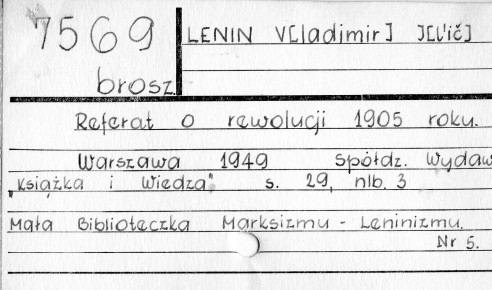 7569
LENIN V[ladimir] J[l'ič]
brosz
Referat o rewolucji 1905 roku.
Warszawa 1949 Spółdz. Wydaw
„Książka i Wiedza" s. 29, nlb. 3
Mała Biblioteczka Marksizmu - Leninizmu.
Nr 5.